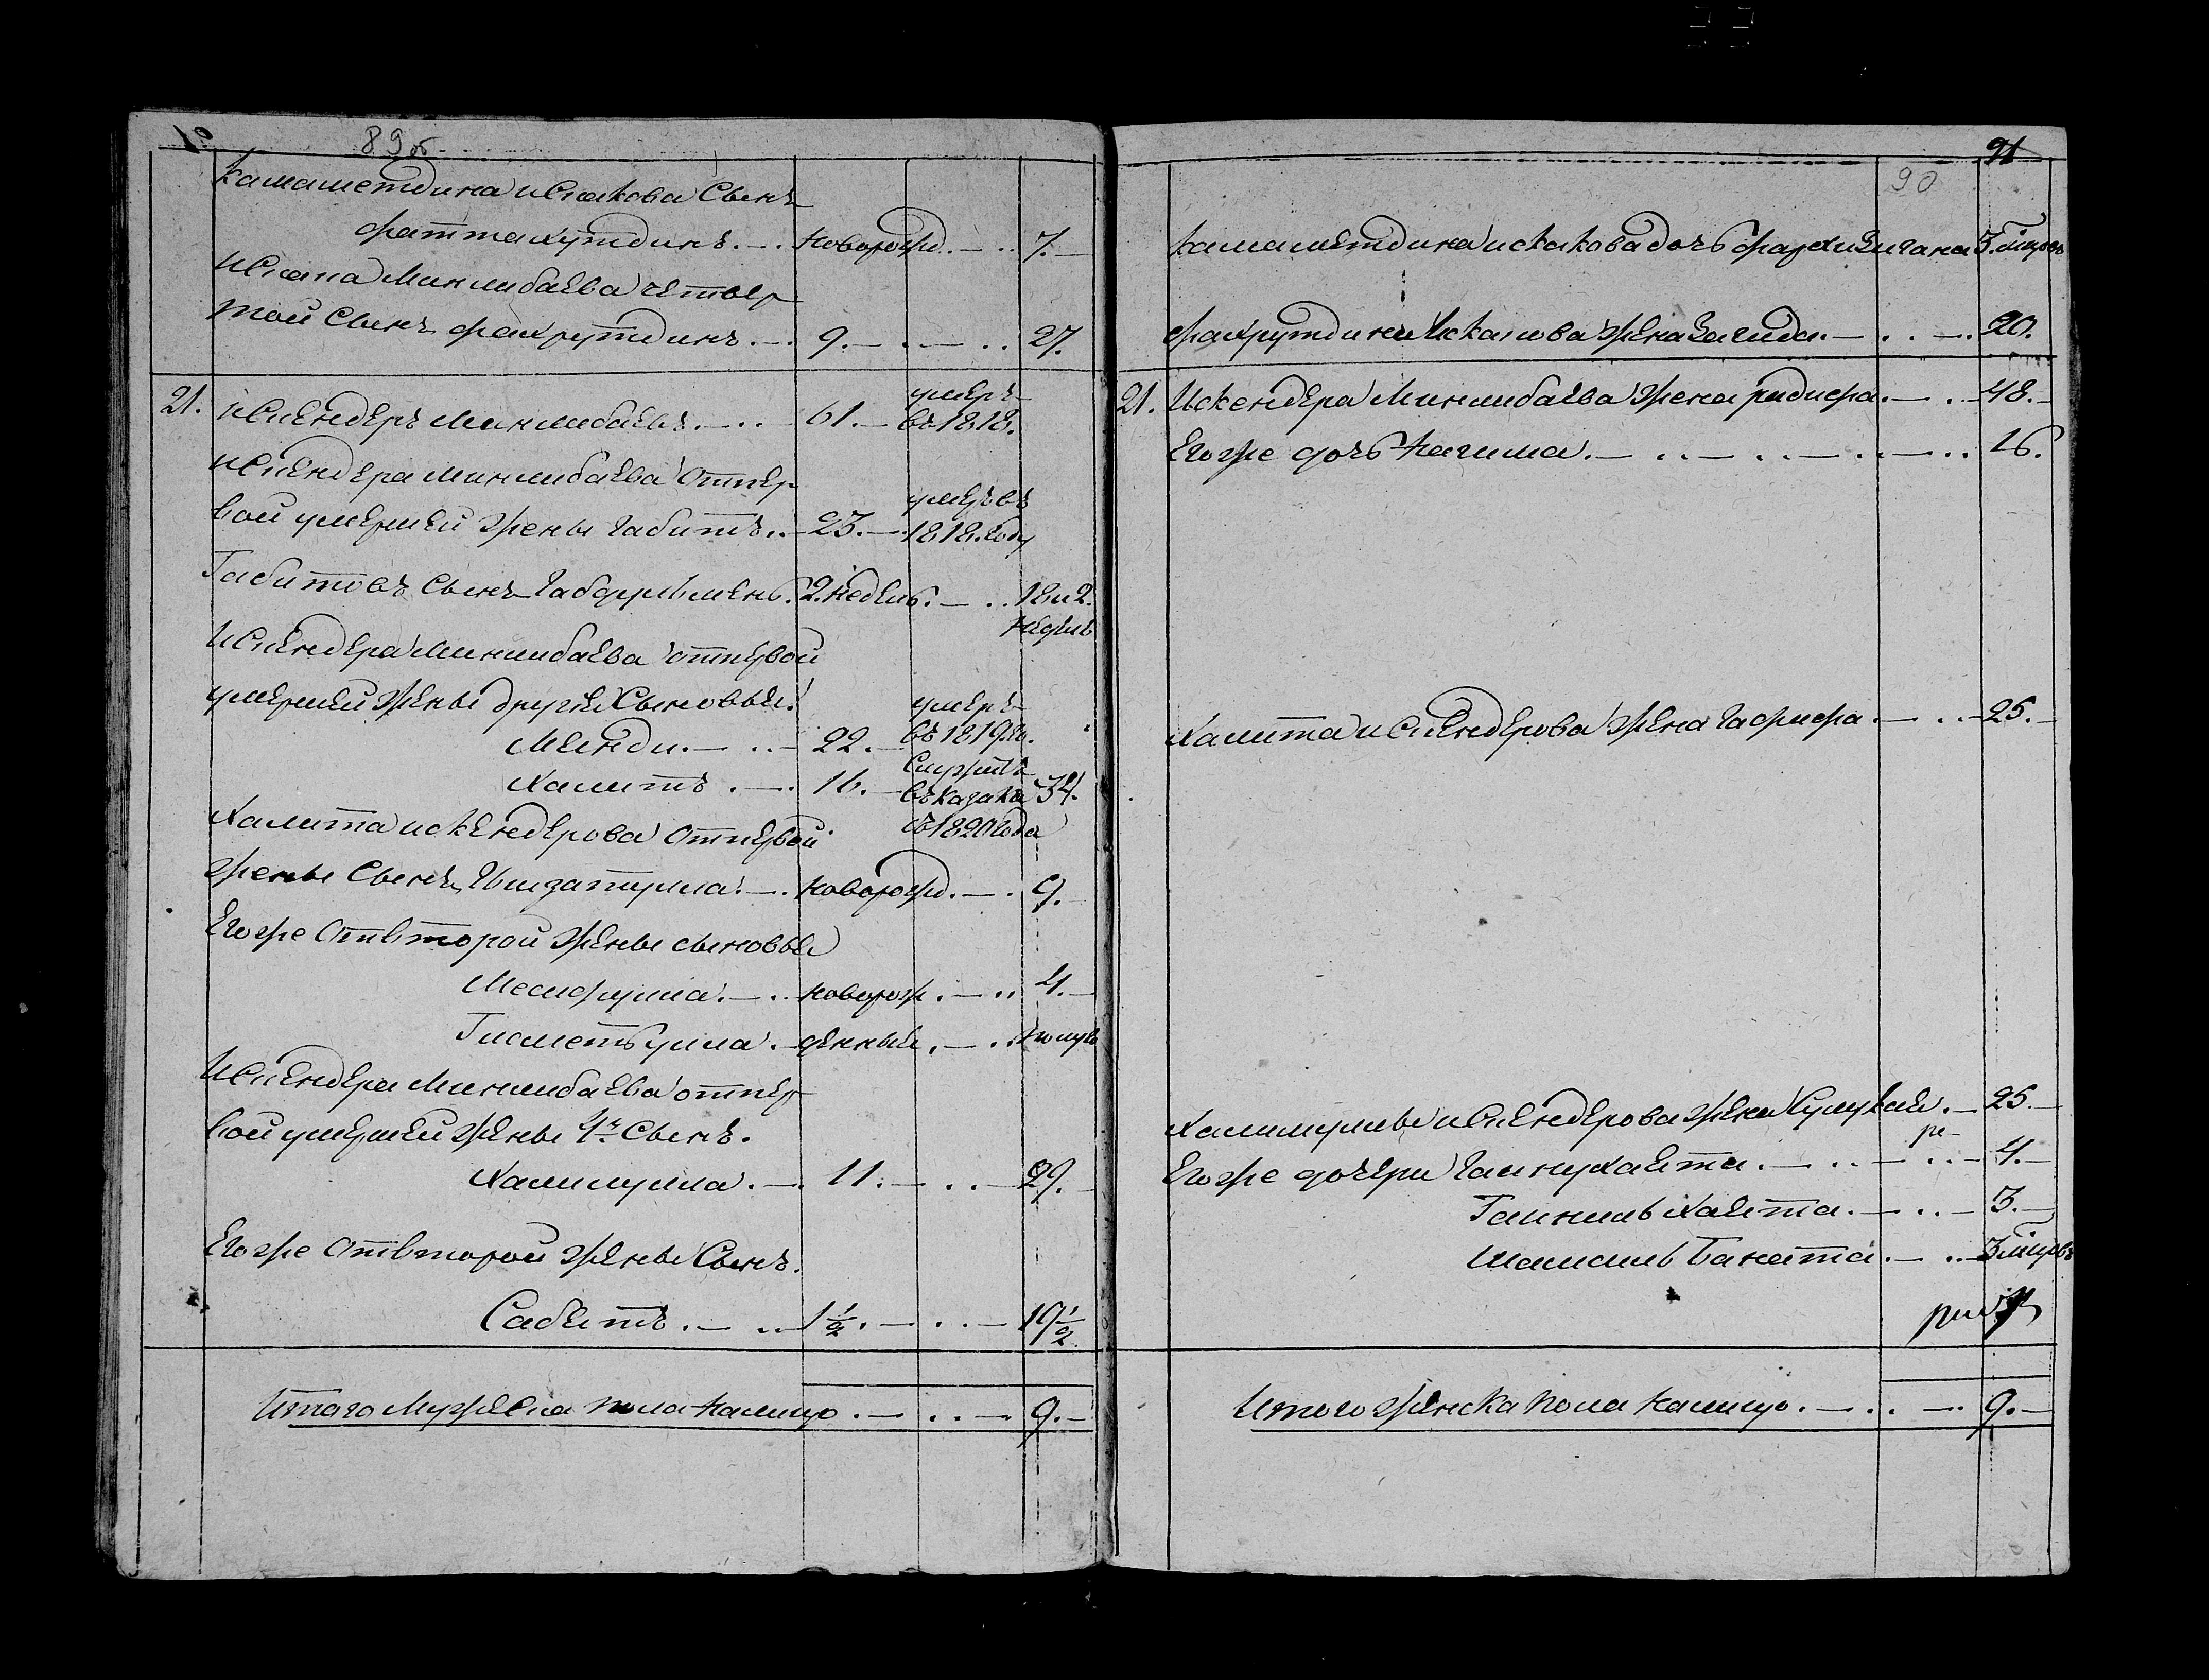 89об
Камаметдина Искакова Сынъ
Фаттахутдинъ. — . Новорожд. — . . 7. —
Искака Минлибаева четвер
той Сынъ Фахрутдинъ. — . 9. — . — . . 27.
21. Искендеръ Минлибаевъ. — . . 61. — умеръ
въ 1818.
Искендера Минлибаева отпер
вой умершей жены Габитъ. . — 23. — умеръ въ
1818. году
Габитовъ Сынъ 2. недель. — . . 18 и 2.
недель
Искендера Минлибаева отпервой
умершей жены другие Сыновья.
Менди. — . . — 22. — умеръ
въ 1819 го.
Халитъ . — . 16. — Служитъ
въ казака 34.
съ 1820 года
Халита Искендерова отпервой
жены Сынъ — . новорожд. — . 9. —
Его же Отвторой жены сыновья
— . . новорож . — . . 4. —
— денныя . — . . 1 полуго
Искендера Минлибаева отпер
вой умершей жены 4й Сынъ.
Халиулла. — . 11. — . . — 29. —
Его же отвторой жены Сынъ.
Сабитъ . — . . 1 1/2. — . . — 19 1/2.
Итого Мужеска пола налицо . — . . — 9. —
91
90
Камаметдина Искакова дочь 3. месцовъ
Фахрутдина Искакова жена Загида. — . . — . 20.
21. Искендера Минлибаева жена — . . — 48. —
Его же дочь Нагима. — . . — . . — . . — . . 16.
Халита Искендерова жена — . . — 25. —
Халиуллы Искендерова жена — 25. —
Его же дочери — . . — . . — 4. —
— . . — 3. —
— . . — 3 месцовъ
Итого женска пола налицо. — . . — . 9. —